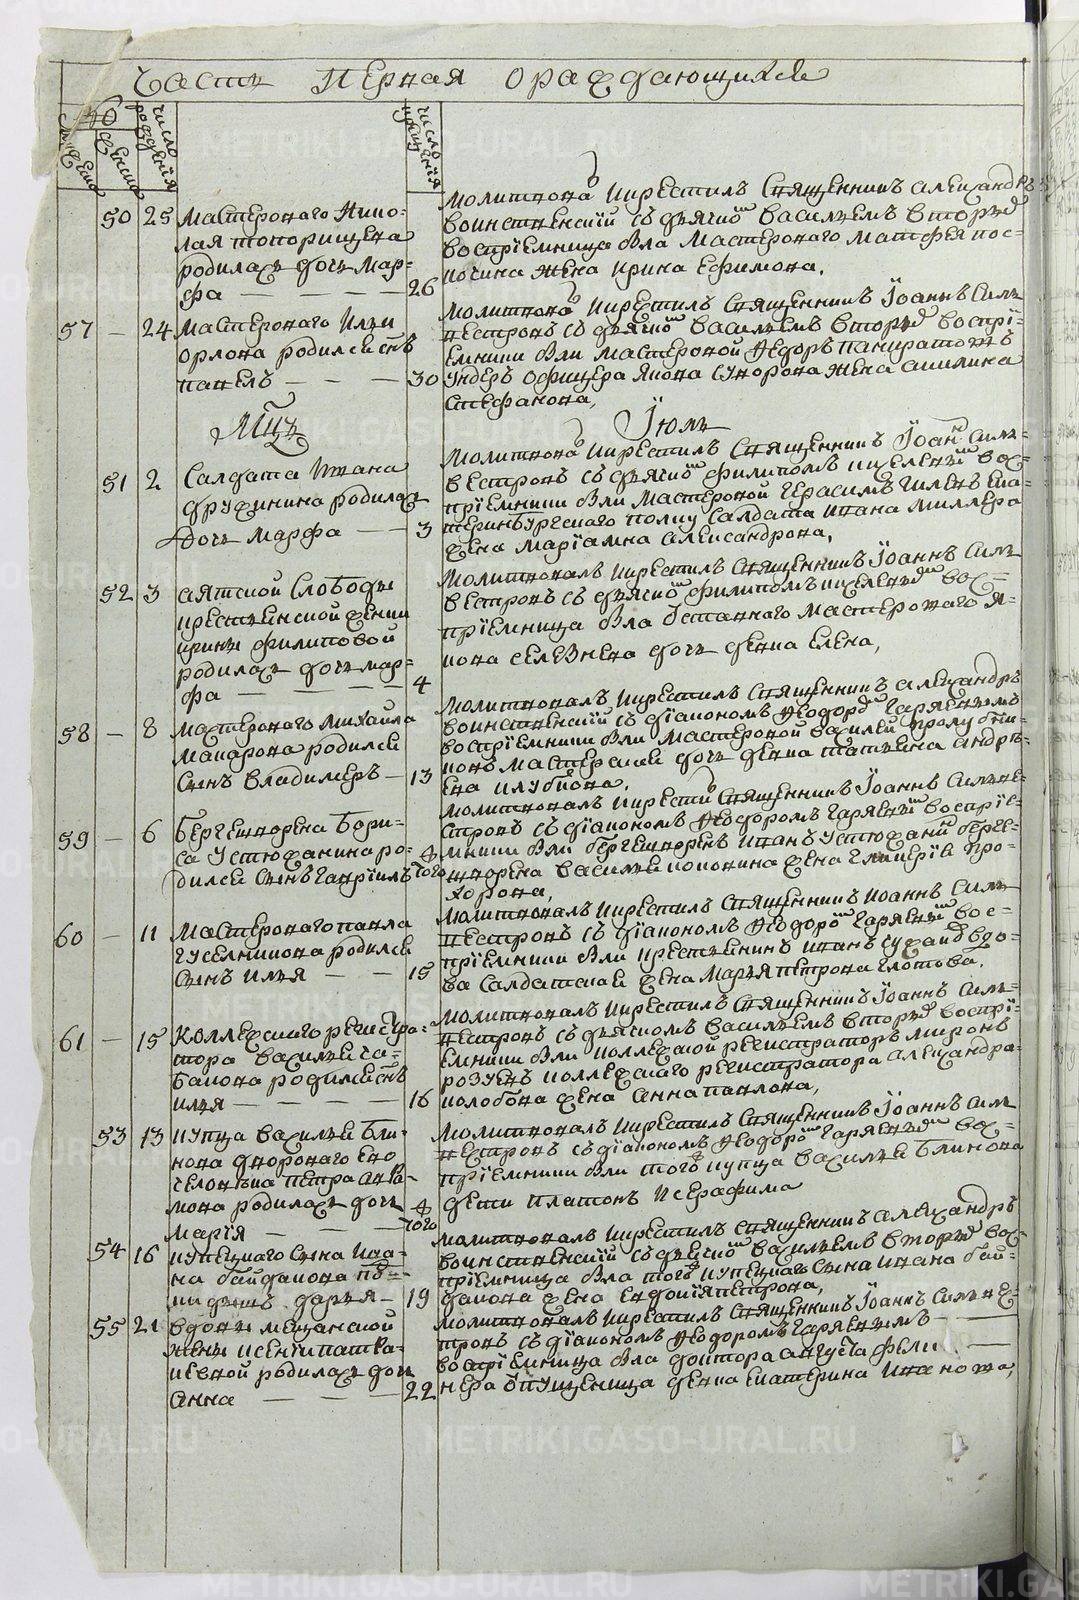 Часть перьвая ораждающихся
№
мужеска
женска
число рождения
число крещения
50 25 Мастероваго Нико-
лая топорищева
родилась дочь Мар-
фа — 26
Молитвовалъ и крестилъ Священникъ Александръ
воинственскій съ дьячкомъ Васильемъ вторыхъ
воспріемница была Мастероваго Матфея пос-
кочина жена Ирина Ефимова,
57 — 24 Мастероваго Ильи
орлова родился снъ
павелъ — 30
Молитвовалъ и крестилъ Священникъ Іоаннъ Силь-
вестровъ съ дьячкомъ Васильемъ вторыхъ воспрі-
емники были Мастеровой Федоръ панкратовъ
Ундеръ офицера Якова Суворова жена акилина
Стефанова,
Мцъ Іюль
51 2 Салдата Ивана
дружинина родилась
дочь Марфа — 3
Молитвовалъ и крестилъ Священникъ Іоаннъ Силь-
вестровъ съ дьячкомъ филипомъ кселевымъ вос-
пріемники были Мастеровой Герасимъ Гилевъ Ека-
теринбургскаго полку Салдата Ивана Миллера
жена Маріамна Александрова,
52 3 аятской Слободы
крестьянской женки
ирины филиповой
родилась дочь мар-
фа — 4
Молитвовалъ и крестилъ Священникъ Іоаннъ Силь-
вестровъ съ дьячкомъ филипомъ кселевымъ вос-
пріемница была отставнаго мастероваго Я-
кова селезнева дочь девка Елена,
58 — 8 мастероваго Михайла
макарова родился
Сынъ Владимеръ — 13
Молитвовалъ и крестилъ Священникъ Александръ
воинственскій съ діакономъ Феодоромъ Гаряевымъ
воспріемники были Мастеровой Василей
мастерской дочь девка татьяна андре-
ева
59 — 6 Бергешворена Бори-
са Устюжанина ро-
дился Сынъ Гавріилъ того
Молитвовалъ и крестилъ Священникъ Іоаннъ Сильве-
стровъ съ діакономъ Феодоромъ Гаряевымъ воспріе-
мники были бергешворенъ Иванъ Устюжанинъ берге-
шворена Василья коковина жена Гликерія про-
хорова,
60 — 11 Мастероваго павла
гуселникова родился
Сынъ Илья — 15
Молитвовалъ и крестилъ Священникъ Иоаннъ Силь-
вестровъ съ діакономъ Феодоромъ Гаряевымъ вос-
пріемники были крестьянинъ Иванъ вдо-
ва Салдатская жена Марья петрова Глотова.
61 — 15 Коллежскаго регистра-
тора Василья ча-
бакова родился снъ
илья — 16
Молитвовалъ и крестилъ Священникъ Іоаннъ Силь-
вестровъ съ дьячкомъ Васильемъ вторыхъ воспрі-
емники были коллежской регистраторъ миронъ
розуевъ коллежскаго регистратора Александра
колобова жена Анна павлова,
53 13 купца Василья Бли-
нова двороваго его
человека петра аки-
мова родилась дочь
Марія — того
Молитвовалъ и крестилъ Священникъ Іоаннъ Силь
вестровъ съ діакономъ Феодоромъ Гаряевымъ вос-
пріемники были того купца Василья Блинова
дети платонъ и серафима
54 16 купецкаго сына ива-
на байдакова
дарья — 19
Молитвовалъ и крестилъ Священникъ Александръ
воинственскій съ дьячкомъ Васильемъ вторыхъ вос-
пріемница была того купецкаго Сына Ивана бай-
дакова жена Евдокія петрова,
55 21 вдовы мещанской
жены ксеніи патра-
кеевной родилась дочь
Анна — 22
Молитвовалъ и крестилъ Священникъ Іоаннъ Сильве-
стровъ съ діакономъ Феодоромъ Гаряевымъ —
воспріемница была доктора августа фелк-
нера опущеница девка Екатерина Иванова,